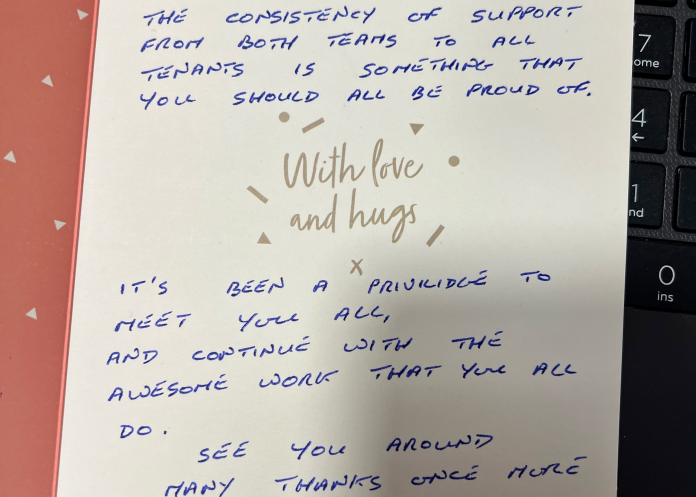 THE CONSISTENCY OF SUPPORT
FROM BOTH TEAMS TO ALL
TENANTS IS SOMETHING THAT
YOU SHOULD ALL BE PROUD OF.
With love
and hugs
x
IT'S BEEN A PRIVILIDGE TO
MEET YOU ALL,
AND CONTINUE WITH THE
AWESOME WORK THAT YOU ALL
DO.
SEE YOU AROUND
MANY THANKS ONCE MORE
7
ome
4
←
1
nd
0
ins